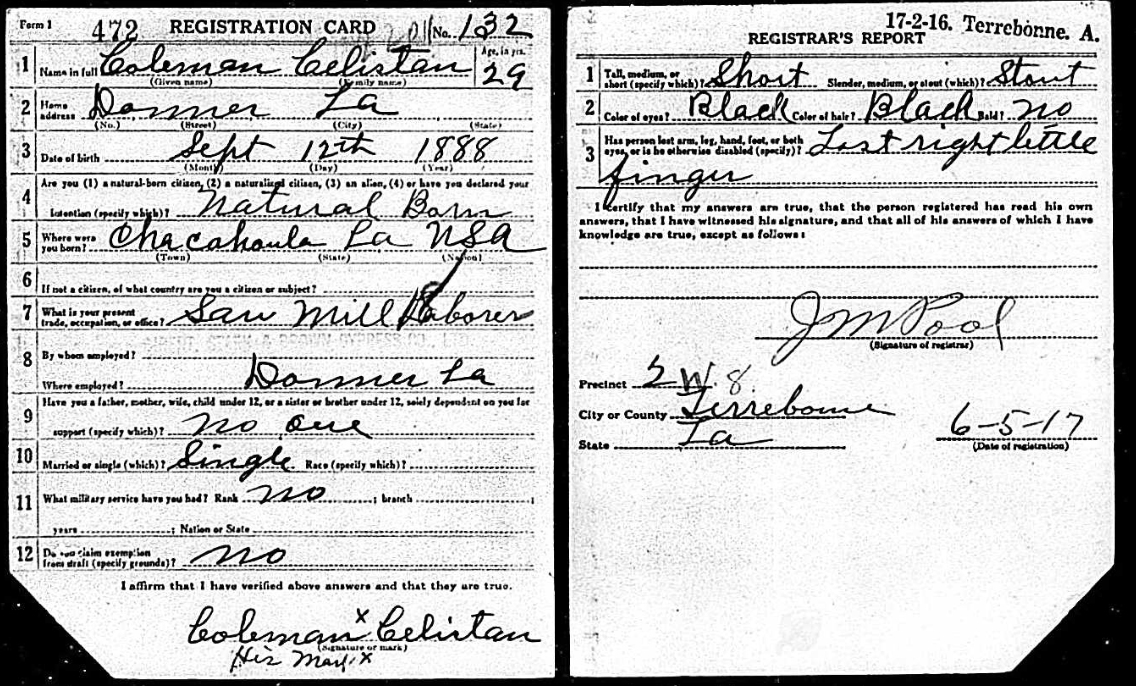 Form 1 472 REGISTRATION CARD No. 132
1 Name in full Coleman Celistan Age, in yrs. 29
(Given name) (Family name)
2 Home address Donner La
(No.) (Street) (City) (State)
3 Date of birth Sept 12th 1888
(Month) (Day) (Year)
4 Are you (1) a natural-born citizen, (2) a naturalized citizen, (3) an alien, (4) or have you declared your
intention (specify which)? Natural Born
5 Where were you born? Chacahoula La USA
(Town) (State) (Nation)
6 If not a citizen, of what country are you a citizen or subject?
7 What is your present trade, occupation, or office? Saw Mill Laborer
8 By whom employed?
Where employed? Donner La
9 Have you a father, mother, wife, child under 12, or a sister or brother under 12, solely dependent on you for
support (specify which)? No one
10 Married or single (which)? Single Race (specify which)?
11 What military service have you had? Rank no ; branch ;
years ; Nation or State
12 Do you claim exemption from draft (specify grounds)? no
I affirm that I have verified above answers and that they are true.
Coleman x Celistan
(Signature or mark)
His Mark x
17-2-16. Terrebonne. A.
REGISTRAR'S REPORT
1 Tall, medium, or short (specify which)? Short Slender, medium, or stout (which)? Stout
2 Color of eyes? Black Color of hair? Black Bald? no
3 Has person lost arm, leg, hand, foot, or both eyes, or is he otherwise disabled (specify)? Lost right little
finger
I certify that my answers are true, that the person registered has read his own
answers, that I have witnessed his signature, and that all of his answers of which I have
knowledge are true, except as follows:
J M Pool
(Signature of registrar)
Precinct 2 W. 8.
City or County Terrebonne
State La 6-5-17
(Date of registration)